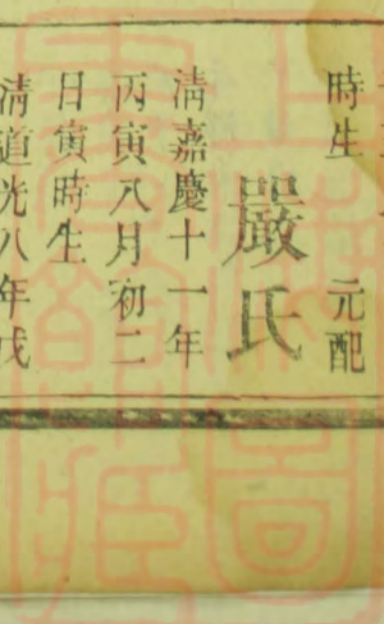 時生 元配
嚴氏
清嘉慶十一年
丙寅八月初二
日寅時生
清道光八年戊